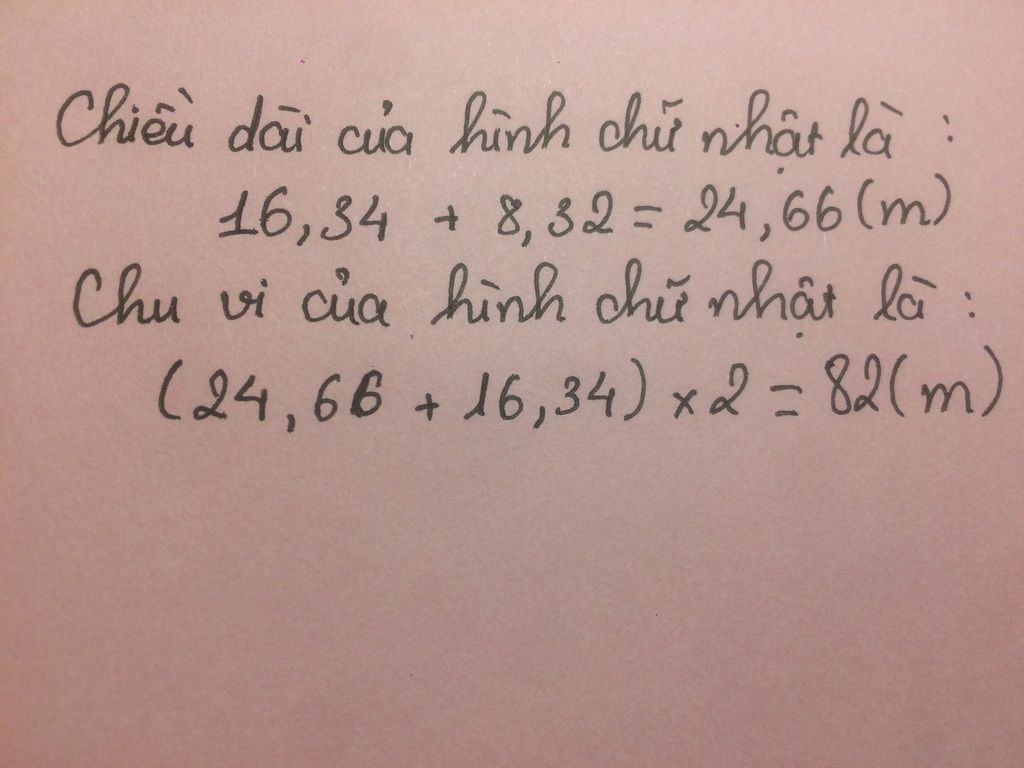 Chiều dài của hình chữ nhật là :
16,34 + 8,32 = 24,66 (m)
Chu vi của hình chữ nhật là :
(24,66 + 16,34) x 2 = 82 (m)